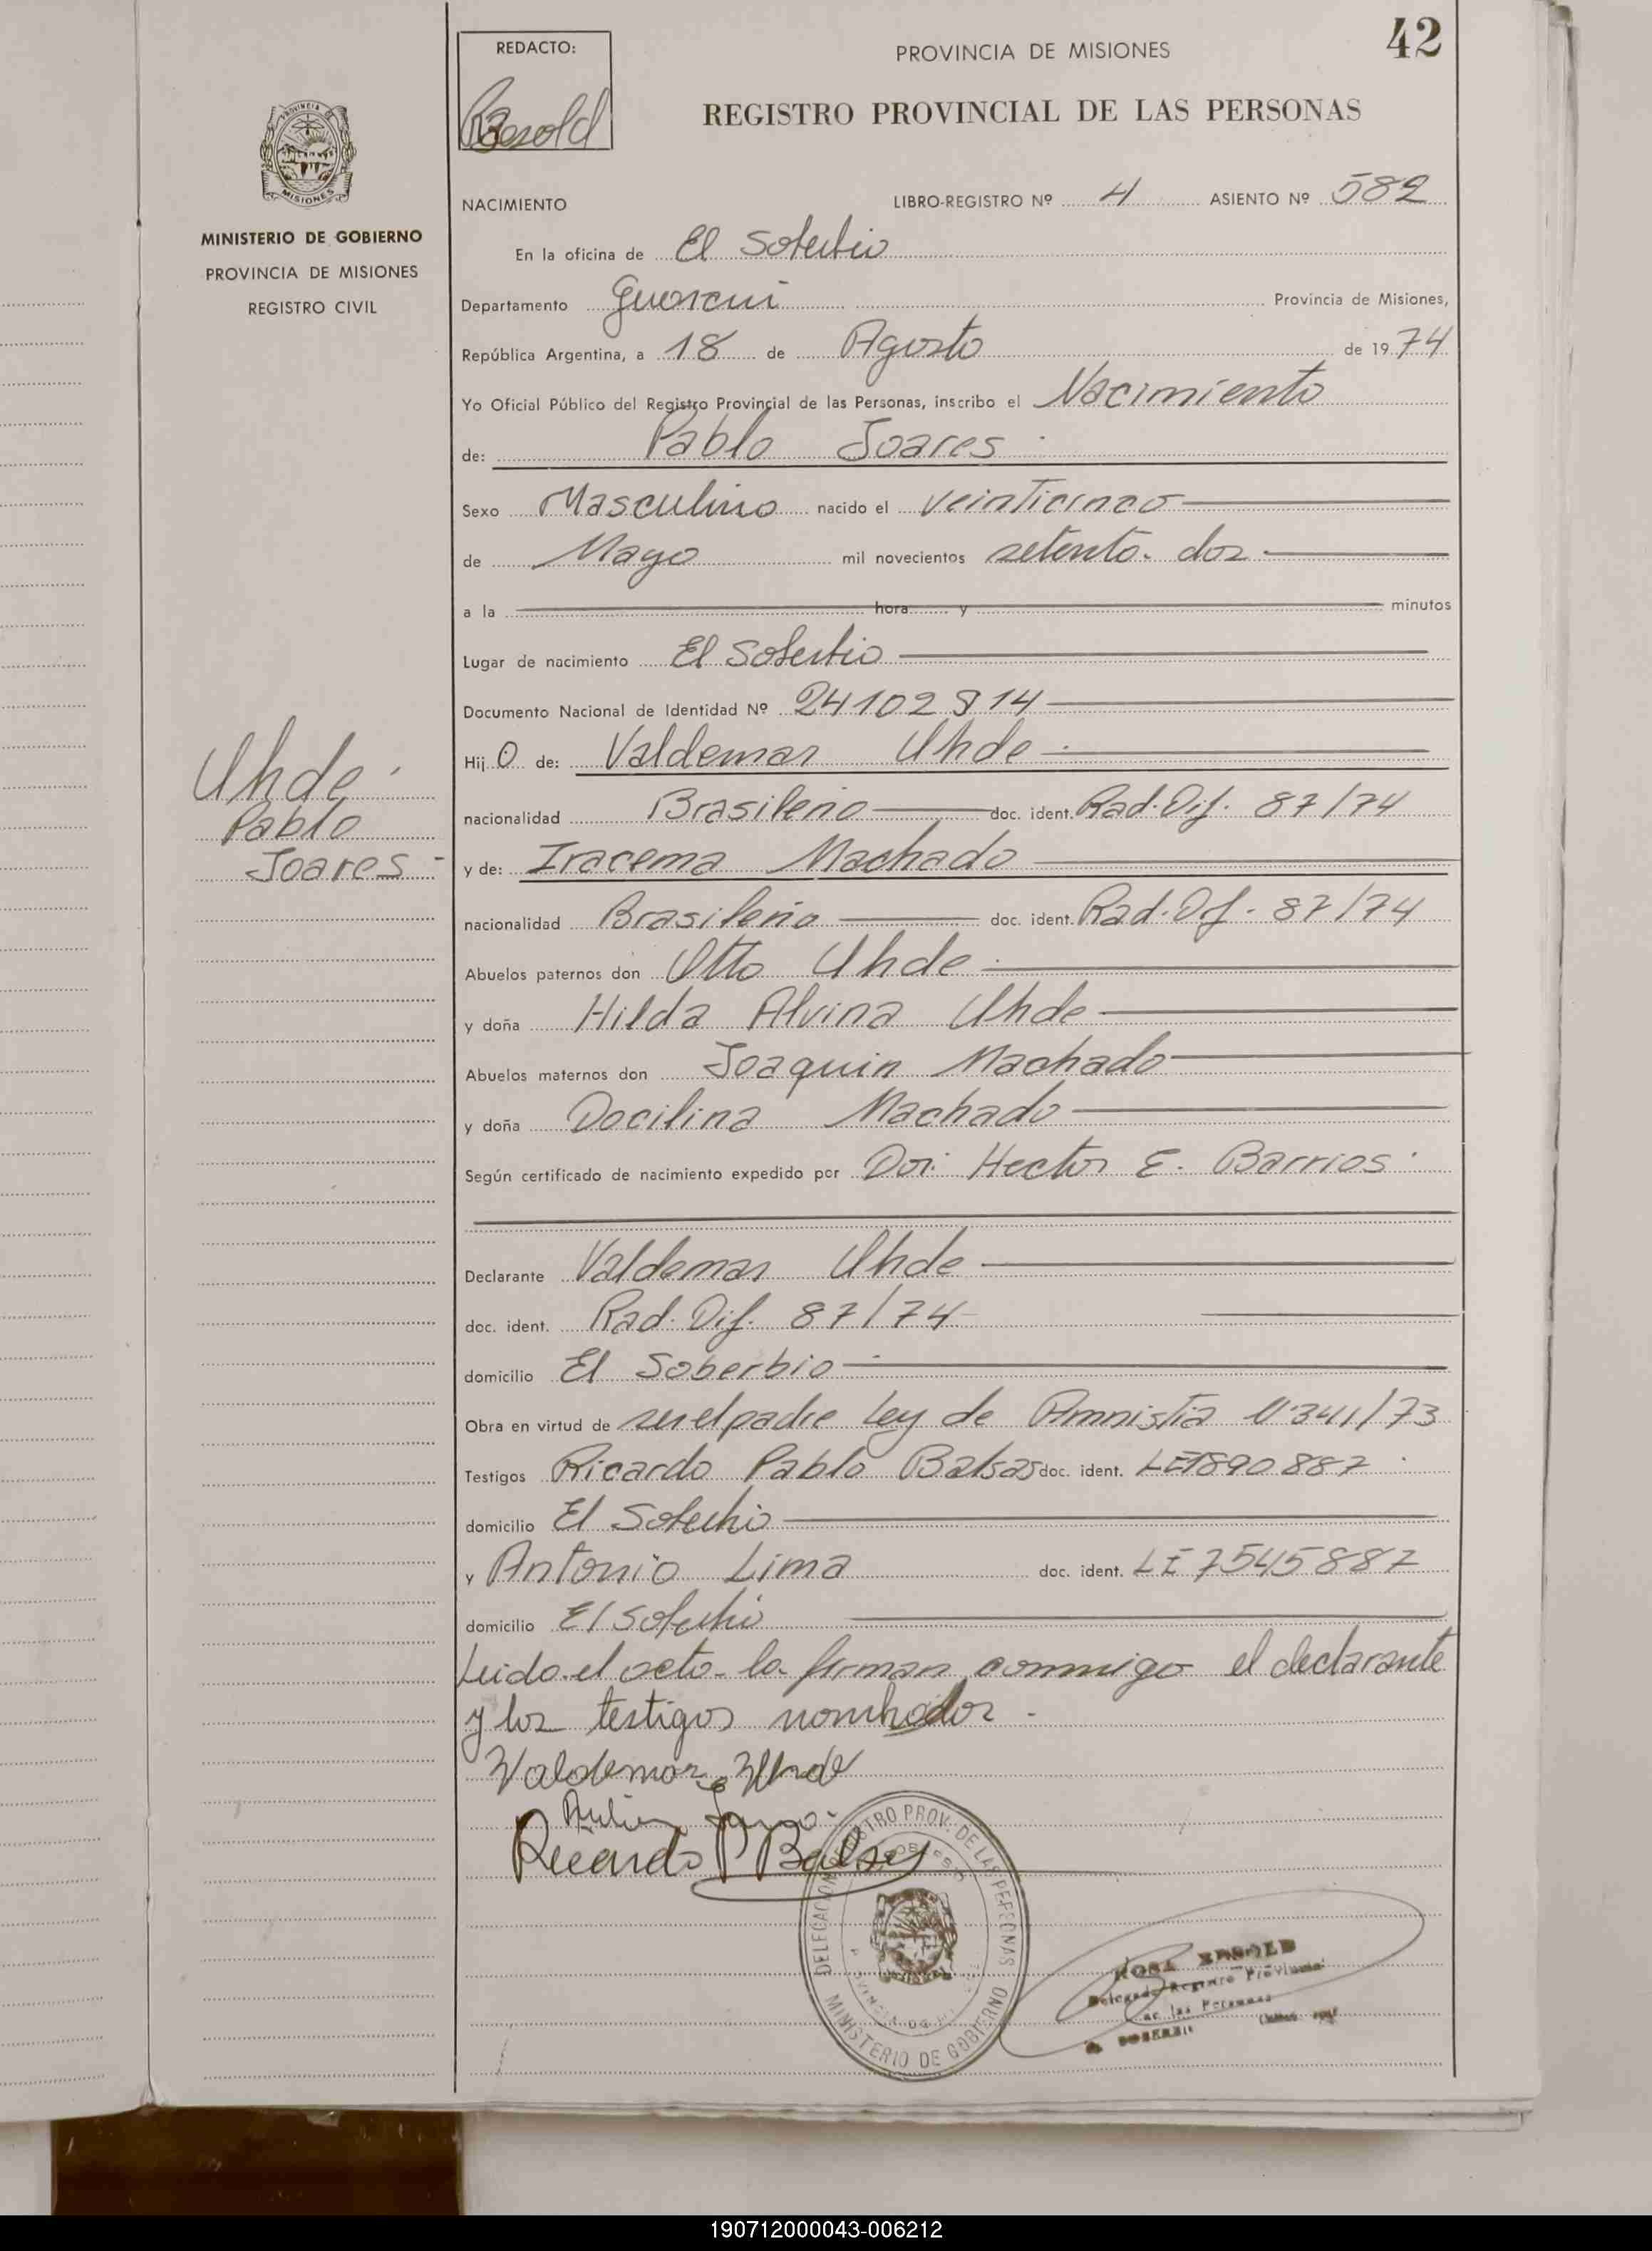 42
REDACTO:
PROVINCIA DE MISIONES
REGISTRO PROVINCIAL DE LAS PERSONAS
PROVINCIA
MISIONES
MINISTERIO DE GOBIERNO
PROVINCIA DE MISIONES
REGISTRO CIVIL
NACIMIENTO LIBRO-REGISTRO Nº 4 ASIENTO Nº 582
En la oficina de El Soberbio
Departamento Guarani Provincia de Misiones,
República Argentina, a 18 de Agosto de 1974
Yo Oficial Público del Registro Provincial de las Personas, inscribo el Nacimiento
de: Pablo Joares
Sexo Masculino nacido el veinticinco
de Mayo mil novecientos setenta. dos
a la hora y minutos
Lugar de nacimiento El Soberbio
Documento Nacional de Identidad Nº 24102914
Hijo de: Valdemar Uhde
nacionalidad Brasileño doc. ident. Rad. Dif. 87/74
y de: Iracema Machado
nacionalidad Brasileña doc. ident. Rad. Df. 87/74
Abuelos paternos don Otto Uhde
y doña Hilda Alvina Uhde
Abuelos maternos don Joaquin Machado
y doña Docilina Machado
Según certificado de nacimiento expedido por Dor. Hector E. Barrios
Declarante Valdemar Uhde
doc. ident. Rad. Dif. 87/74
domicilio El Soberbio
Obra en virtud de ser el padre Ley de Amnistia Nº 341/73
Testigos Ricardo Pablo Balsas doc. ident. LE 1890887
domicilio El Soberbio
y Antonio Lima doc. ident. LE 7545887
domicilio El Soberbio
Leido el acta la firman conmigo el declarante
y los testigos nombrados.
Valdemar Uhde
Ricardo P Balsas
Uhde
Pablo
Joares
DELEGACION REGISTRO PROV. DE LAS PERSONAS
MINISTERIO DE GOBIERNO
Delegada Registro Provincial
de las Personas
190712000043-006212